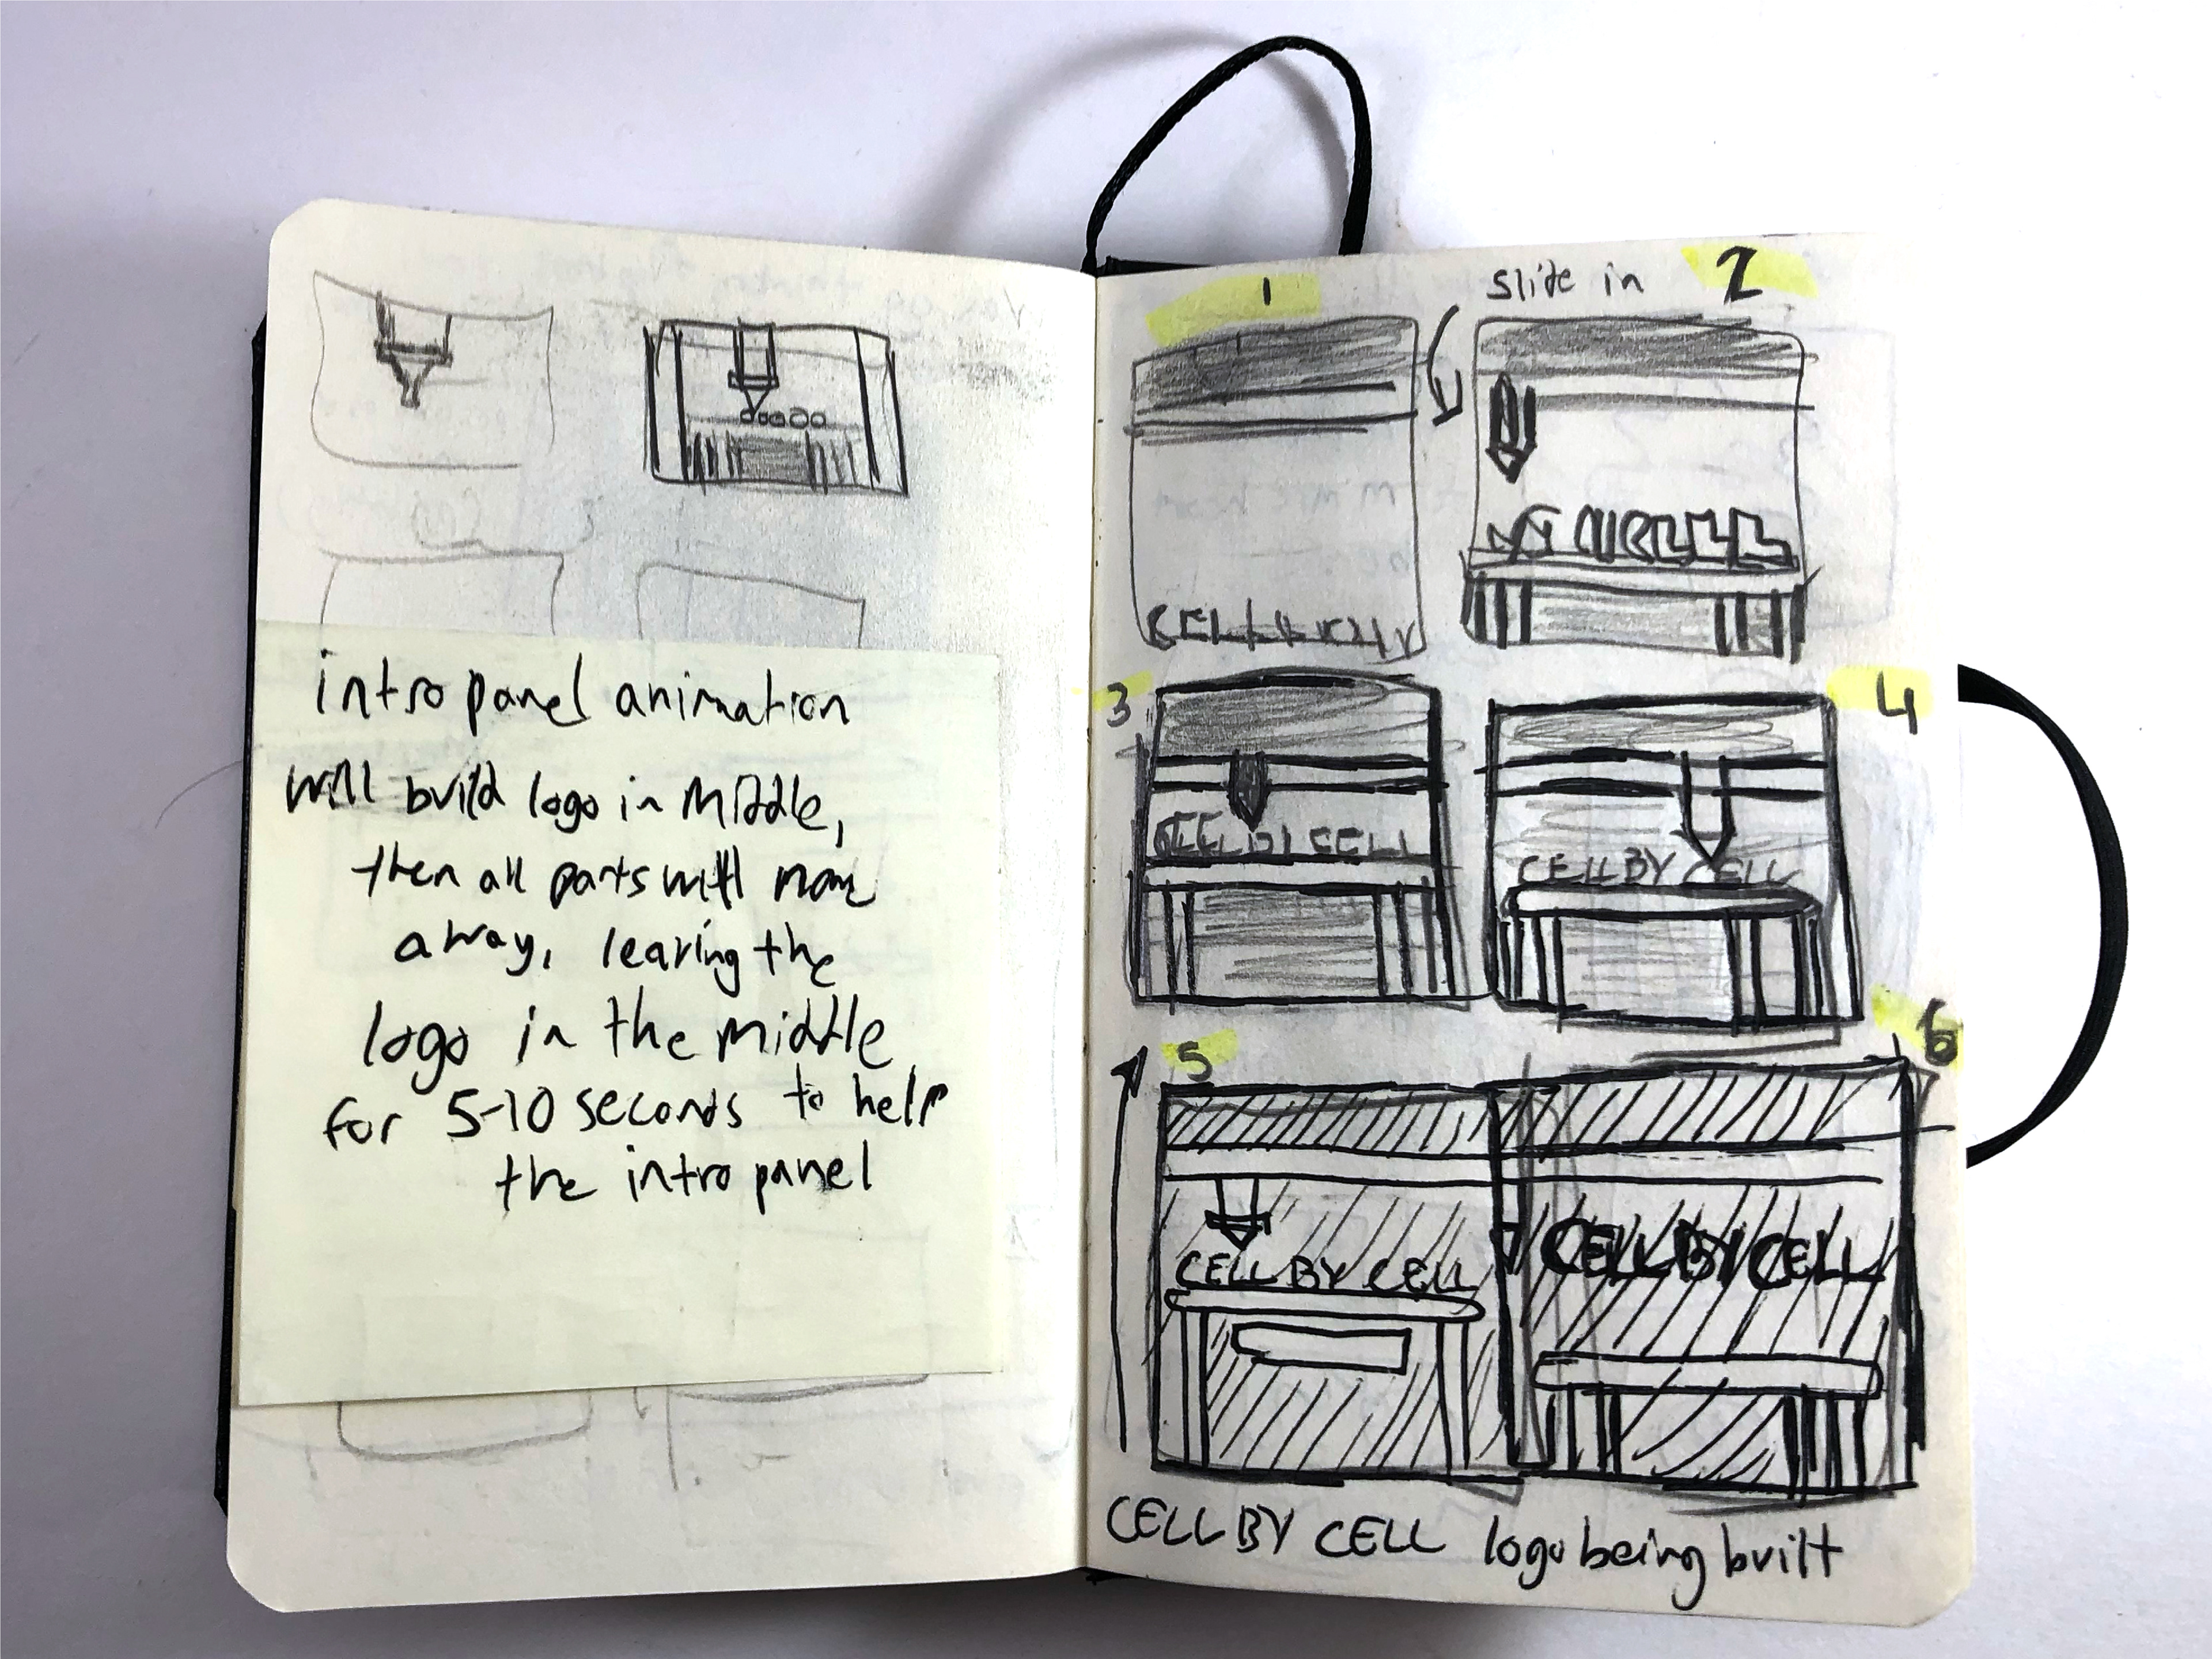 intro panel animation
will build logo in middle,
then all parts will move
away, leaving the
logo in the middle
for 5-10 seconds to help
the intro panel
1
slide in 2
3
4
CELL BY CELL
CELL BY CELL
5
6
CELL BY CELL
CELL BY CELL
CELL BY CELL logo being built